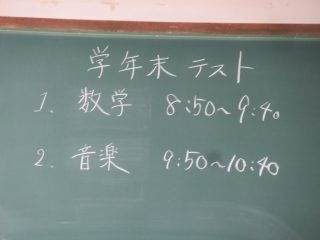 学年末 テスト
1. 数学 8:50~9:40
2. 音楽 9:50~10:40